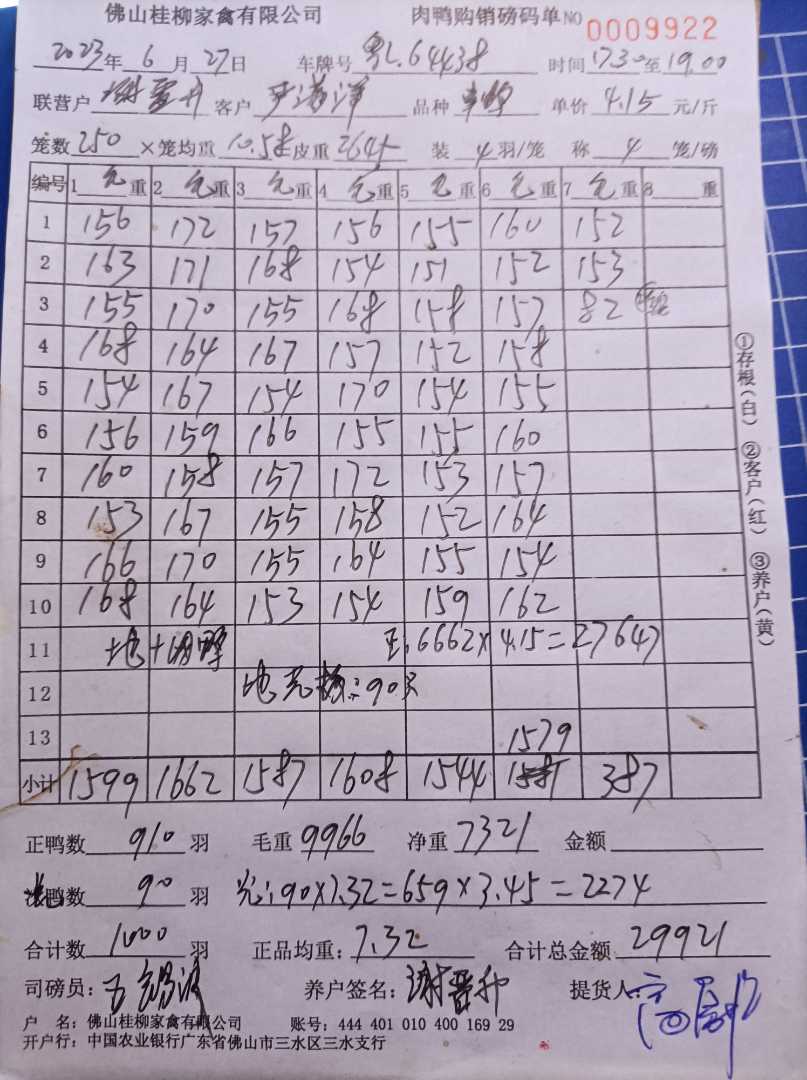 佛山桂柳家禽有限公司 肉鸭购销磅码单 NO 0009922
2023年 6月 27日 车牌号 粤L.64438 时间 17.30至19.00
联营户 谢晋升 客户 品种 单价 4.15 元/斤
笼数 250 ×笼均重 10.58 皮重 2645 装 4 羽/笼 称 4 笼/磅
编号 1 毛重 2 毛重 3 毛重 4 毛重 5 毛重 6 毛重 7 毛重 8 重
1 156 172 157 156 155 160 152
2 163 171 168 154 151 152 153
3 155 170 155 168 158 157 82
4 168 164 167 157 152 158
5 154 167 154 170 154 155
6 156 159 166 155 155 160
7 160 158 157 172 153 157
8 153 167 155 158 152 164
9 166 170 155 164 155 154
10 168 164 153 154 159 162
11 正:6662×4.15=27647
12
13 1579
小计 1599 1662 1587 1608 1544 387
正鸭数 910 羽 毛重 9966 净重 7321 金额
鸭数 90 羽 :90×7.32=659×3.45=2274
合计数 1000 羽 正品均重: 7.32 合计总金额 29921
司磅员: 养户签名: 谢晋升 提货人:
户 名: 佛山桂柳家禽有限公司 账号: 444 401 010 400 169 29
开户行: 中国农业银行广东省佛山市三水区三水支行
①存根(白) ②客户(红) ③养户(黄)